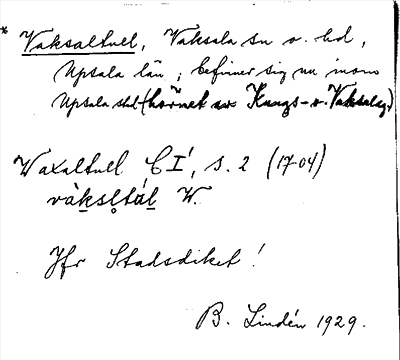 * Vaksaltull, Vaksala sn o. hd,
Upsala län; befinner sig nu inom
Upsala stad (hörnet av Kungs- o. Vaksalag.)
Waxaltull C I¹, s. 2 (1704)
vàksl̥tál W.
Jfr Stadsdiket!
B. Lindén 1929.